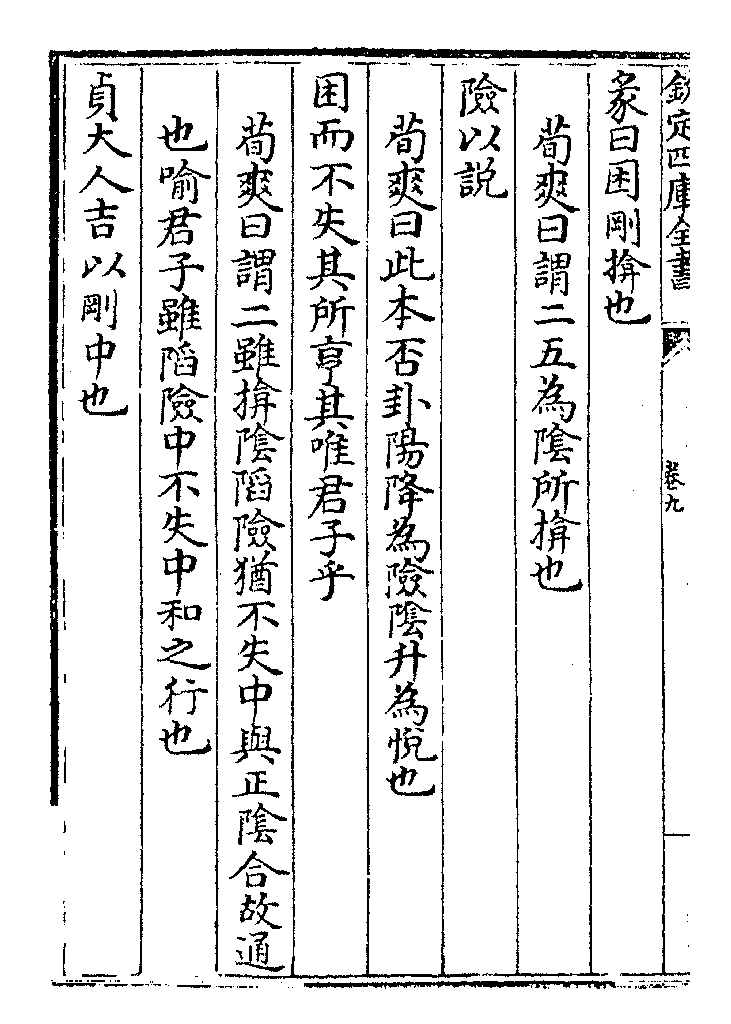 欽定四庫全書
卷九
彖曰困剛揜也
荀爽曰謂二五為陰所揜也
險以説
荀爽曰此本否卦陽降為險陰升為悅也
困而不失其所亨其唯君子乎
荀爽曰謂二雖揜陰陷險猶不失中與正陰合故通
也喻君子雖陷險中不失中和之行也
貞大人吉以剛中也